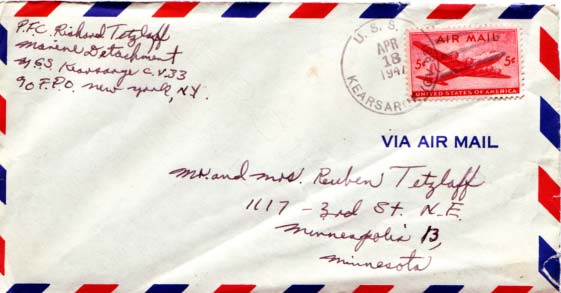 P.F.C. Richard Tetzlaff
Marine Detachment
U.S.S. Kearsarge C.V.33
℅ F.P.O. New York, N.Y.
U.S.S.
APR
18
1947
KEARSARGE
AIR MAIL
5¢ 5¢
UNITED STATES OF AMERICA
VIA AIR MAIL
Mr. and Mrs. Reuben Tetzlaff
1117 - 3rd St. N.E.
Minneapolis 13,
Minnesota